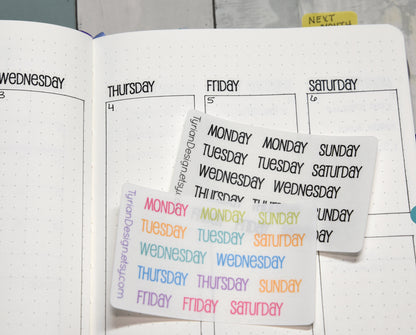 NEXT
MONTH
WEDNESDAY THURSDAY FRIDAY SATURDAY
3 4 5 6
TyrianDesign.etsy
MONDAY MONDAY SUNDAY
TUESDAY TUESDAY SATURDAY
WEDNESDAY WEDNESDAY
THURSDAY
SUNDAY
SATURDAY
TyrianDesign.etsy.com
MONDAY MONDAY SUNDAY
TUESDAY TUESDAY SATURDAY
WEDNESDAY WEDNESDAY
THURSDAY THURSDAY SUNDAY
FRIDAY FRIDAY SATURDAY